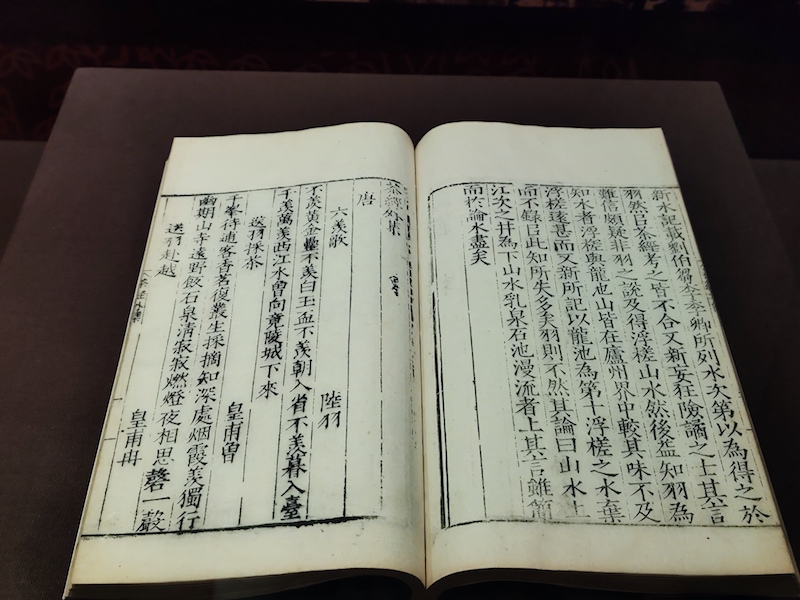 新水記載劉伯芻李季卿所列水次第以為得之於
羽然以茶經考之皆不合又新妄狂險譎之士其言
難信頗疑非羽之說及得浮槎山水然後益知羽為
知水者浮槎與龍池山皆在廬州界中較其味不及
浮槎遠甚而又新所記以龍池為第十浮槎之水棄
而不錄以此知所失多矣羽則不然其論曰山水上
江次之井為下山水乳泉石池漫流者上其言雖簡
而於論水盡矣
茶經外集
唐
六羨歌 陸羽
不羨黃金罍不羨白玉盃不羨朝入省不羨暮入臺
千羨萬羨西江水曾向竟陵城下來
送羽採茶 皇甫曾
千峯待逋客香茗復叢生採摘知深處烟霞羨獨行
幽期山寺遠野飯石泉清寂寂燃燈夜相思磬一聲
送羽赴越 皇甫冉